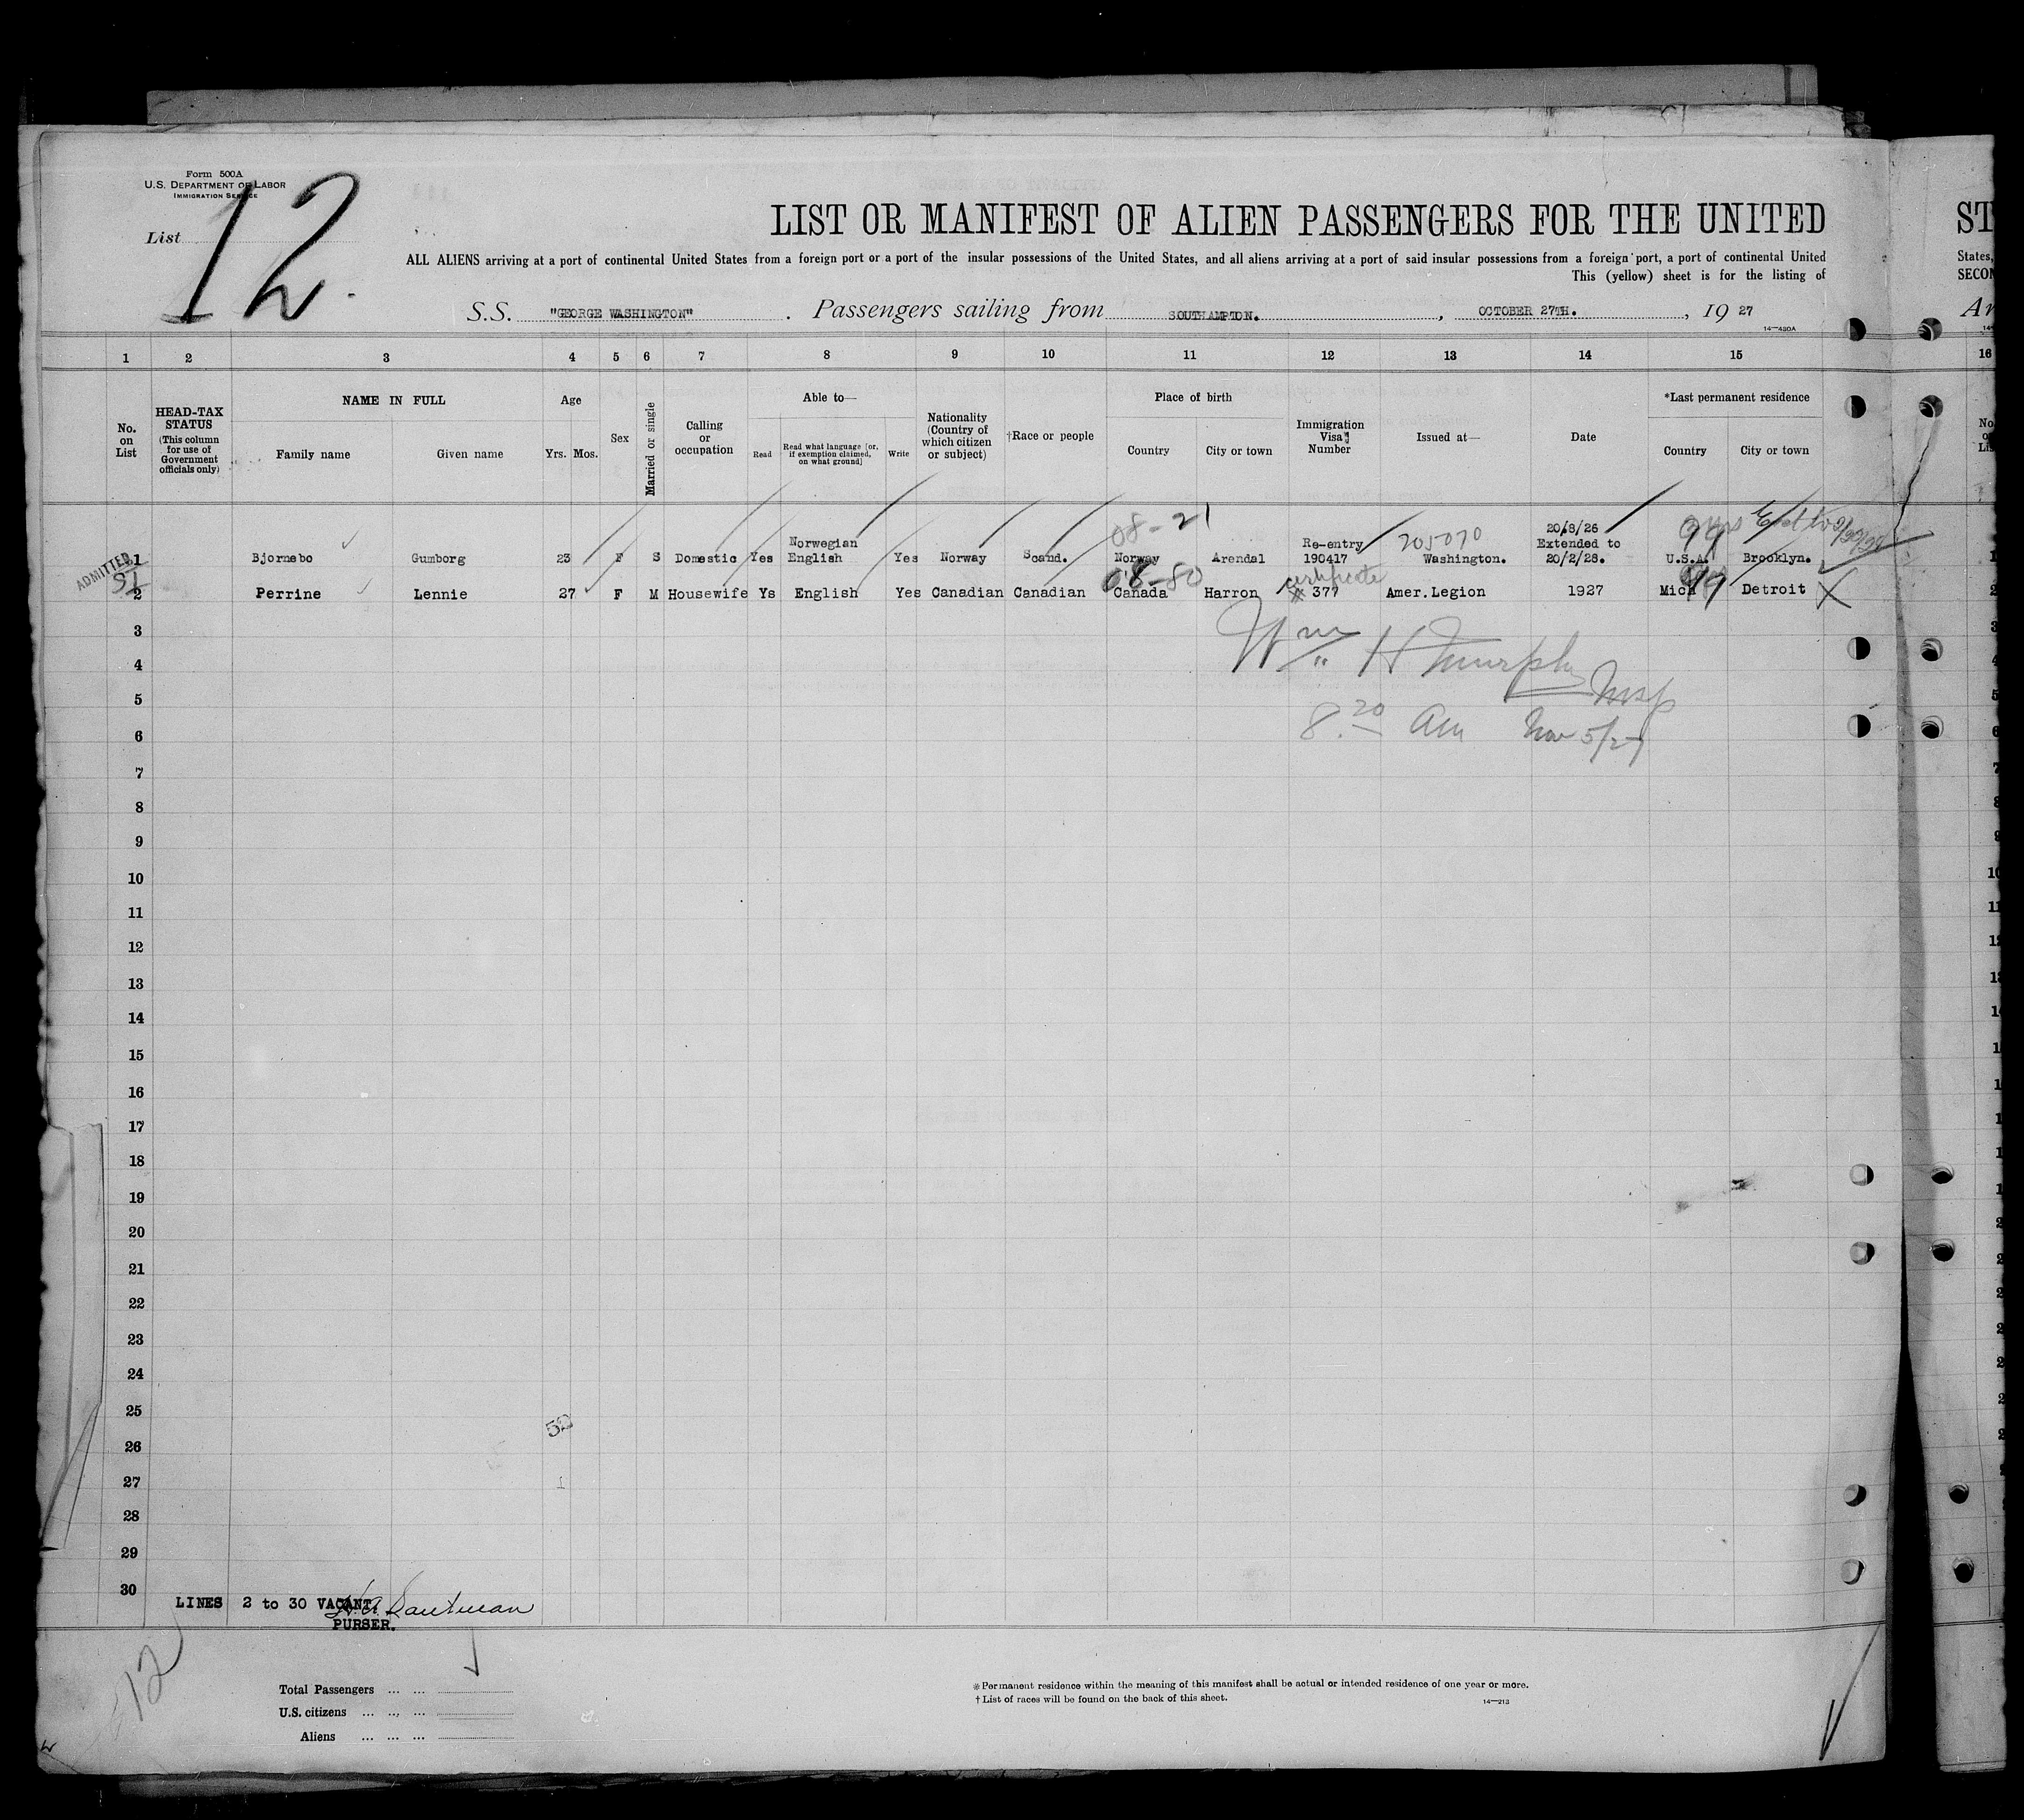 Form 500A
U.S. DEPARTMENT OF LABOR
IMMIGRATION SERVICE
List 12
LIST OR MANIFEST OF ALIEN PASSENGERS FOR THE UNITED
ALL ALIENS arriving at a port of continental United States from a foreign port or a port of the insular possessions of the United States, and all aliens arriving at a port of said insular possessions from a foreign port, a port of continental United
This (yellow) sheet is for the listing of
S.S. "GEORGE WASHINGTON" . Passengers sailing from SOUTHAMPTON. , OCTOBER 27TH. , 19 27
14—430A
1 2 3 4 5 6 7 8 9 10 11 12 13 14 15
No. on List
HEAD-TAX STATUS
(This column for use of Government officials only)
NAME IN FULL
Family name Given name
Age
Yrs. Mos.
Sex
Married or single
Calling or occupation
Able to—
Read
Read what language [or, if exemption claimed, on what ground]
Write
Nationality (Country of which citizen or subject)
†Race or people
Place of birth
Country City or town
Immigration Visa Number
Issued at—
Date
*Last permanent residence
Country City or town
ADMITTED
08-21
205070
20/8/26
Norwegian Re-entry Extended to
1 Bjornebo Gumborg 23 F S Domestic Yes English Yes Norway Scand. Norway Arendal 190417 Washington. 20/2/28. U.S.A. Brooklyn.
08-80 certificate
2 Perrine Lennie 27 F M Housewife Ys English Yes Canadian Canadian Canada Harron # 377 Amer.Legion 1927 Mich Detroit
3
Wm H Murphy
4
Insp
5
8.20 am Nov 5/27
6
7
8
9
10
11
12
13
14
15
16
17
18
19
20
21
22
23
24
25
52
26
27
1
28
29
30
LINES 2 to 30 VACANT.
PURSER.
12
Total Passengers ... ...
U.S. citizens ... ... ...
Aliens ... ... ...
* Permanent residence within the meaning of this manifest shall be actual or intended residence of one year or more.
† List of races will be found on the back of this sheet.
14—213
ST
States,
SECON
16